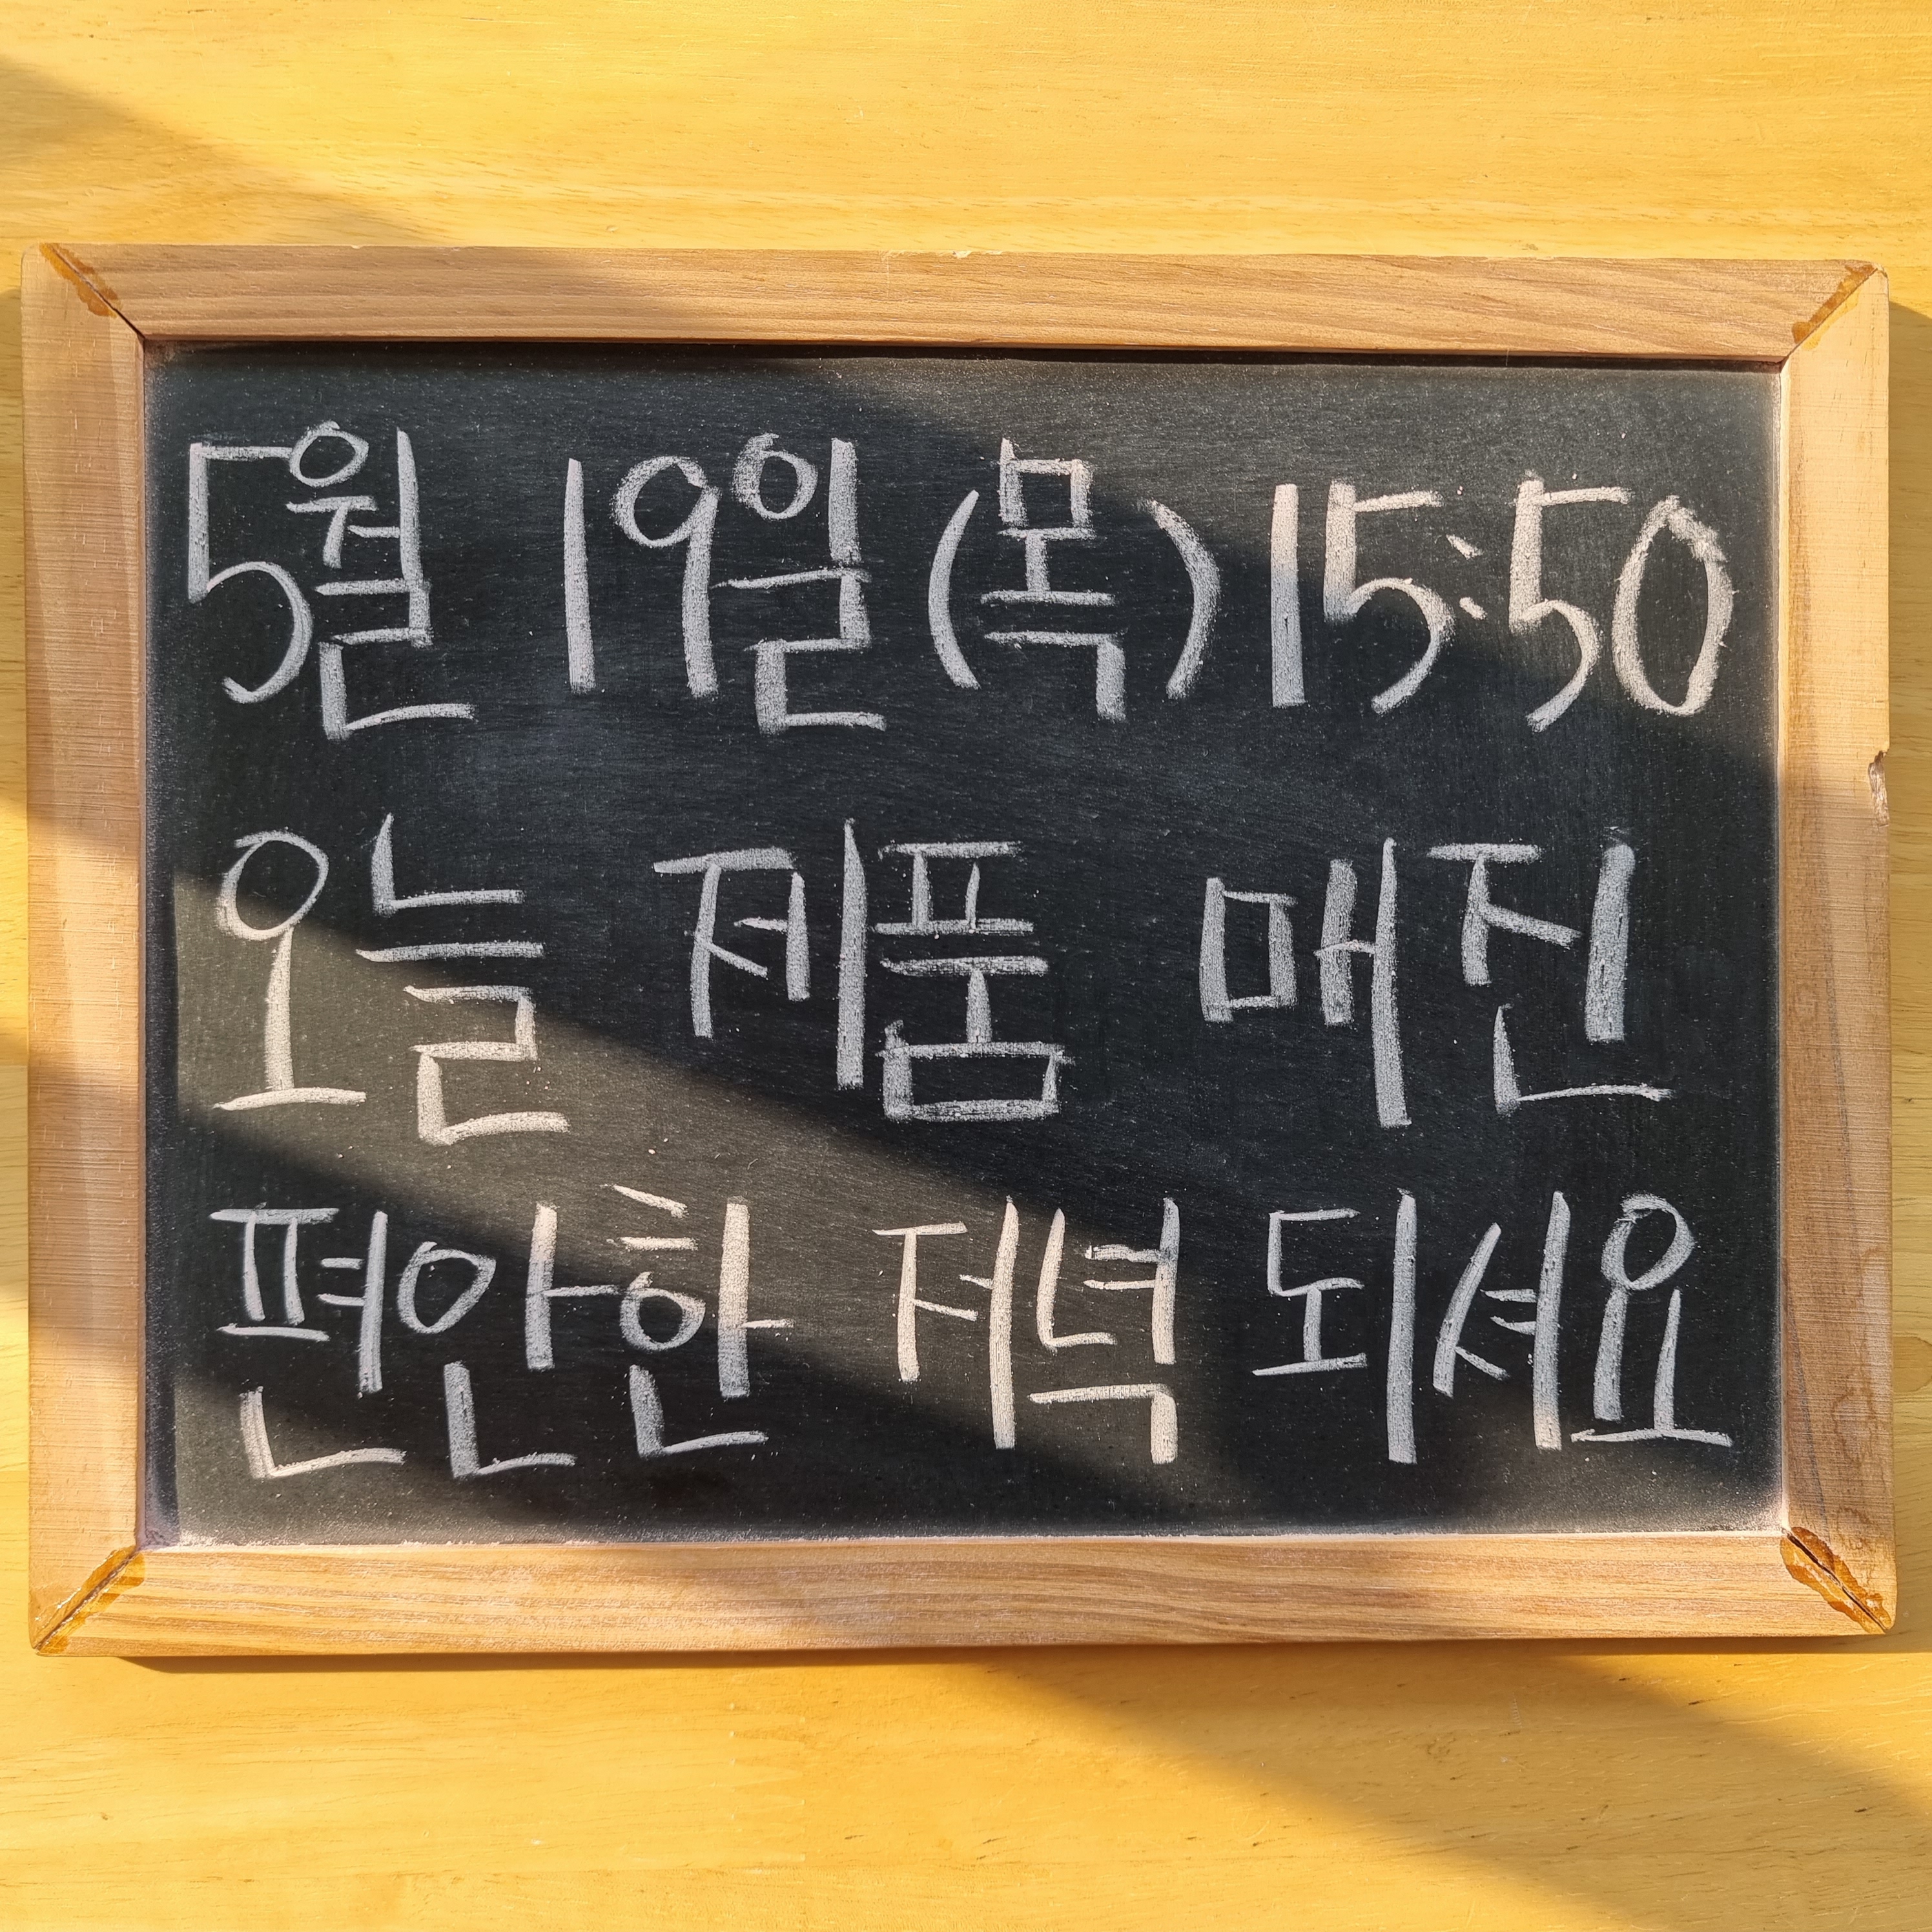 5월 19일(목) 15:50
오늘 제품 매진
편안한 저녁 되셔요